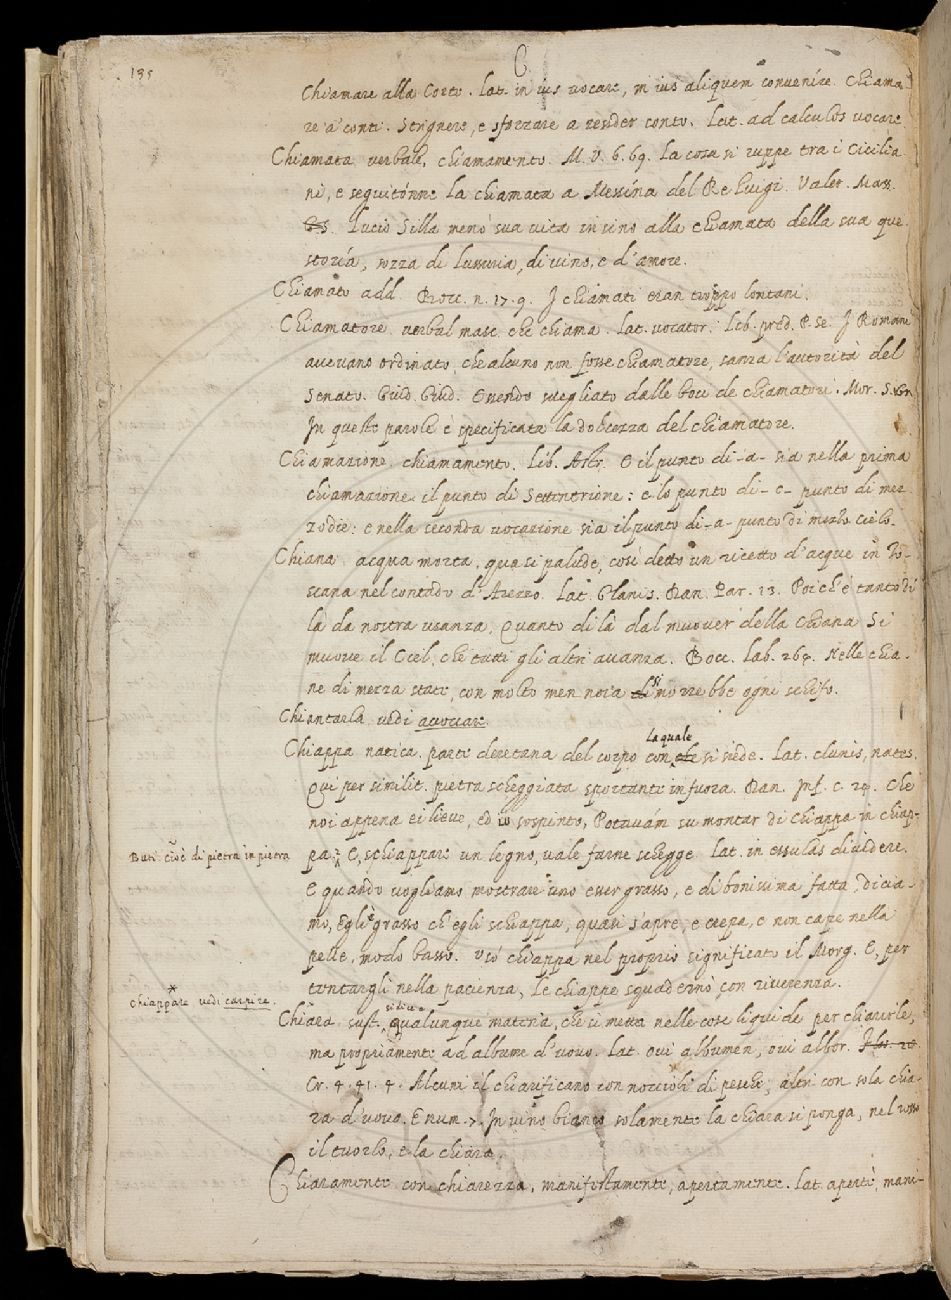 135
C
Chiamare alla Corte. Lat. in ius vocare, in ius aliquem convenire. Chiama
re a' conti. Strignere, e sforzare a render conto. Lat. ad calculos vocare
Chiamata verbale, chiamamento. M. V. 6. 69. La cosa si ruppe tra i Cicilia
ni, e seguitónne la chiamata a Messina del Re Luigi. Valer. Mass.
Lucio Silla menò sua vita insino alla chiamata della sua que
storia, sozza di lussuria, di vino, e d'amore.
Chiamato add. Bocc. n. 17. 9. I chiamati eran troppo lontani.
Chiamatore verbal masc. che chiama. Lat. vocator. Lib. pred. P. Se. I Romani
avevano ordinato, che alcuno non fosse chiamatore, sanza l'autorità del
Senato. Guid. Guid. Essendo svegliato dalle boci de chiamatori. Mor. S. Gr.
In queste parole è specificata la dolcezza del chiamatore.
Chiamazione. chiamamento. Lib. Astr. E il punto di -a- sia nella prima
chiamazione il punto di Settentrione: e lo punto di -c- punto di mez
zodie: e nella seconda vocazione sia il punto di -a- punto di mezzo cielo.
Chiana. acqua morta, quasi palude, così detto un ricetto d'acque in To-
scana nel contado d'Arezzo. Lat. Glanis. Dan. Par. 13. Poich'è tanto di
là da nostra usanza, Quanto di là dal muover della Chiana Si
muove il Ciel, che tutti gli altri avanza. Bocc. Lab. 269. Nelle chia-
ne di mezza state, con molto men noia si morrebbe ogni schifo.
Chiantarla vedi accoccare.
Chiappa natica, parte deretana del corpo con laquale si siede. Lat. clunis, nates.
Qui per similit. pietra scheggiata sportante in fuora. Dan. Inf. c. 24. Che
noi appena ei lieve, ed io sospinto, Potavám su montar di chiappa in chiap-
Buti cioè di pietra in pietra
pa. E, schiappare un legno, vale farne schegge Lat. in assulas dividere.
E quando vogliamo mostrare uno esser grasso, e di bonissima fatta, dicia-
mo, Egli è grasso ch'egli schiappa, quasi s'apre, e crepa, e non cape nella
pelle, modo basso. Usò chiappa nel proprio significato il Morg. E, per
contargli nella pacienza, Le chiappe squadernò con riverenza.
Chiappare vedi carpire.
Chiara sust. si dice qualunque materia, che si metta nelle cose liquide per chiarirle,
ma propriamente ad albume d'uovo. Lat. ovi albumen, ovi albor.
Cr. 4. 41. 4. Alcuni il chiarificano con noccioli di pesche, altri con sola chia-
ra d'uova. E num. 7. In vino bianco solamente la chiara si ponga, nel rosso
il tuorlo, e la chiara.
Chiaramente. con chiarezza, manifestamente, apertamente. Lat. aperte, mani-